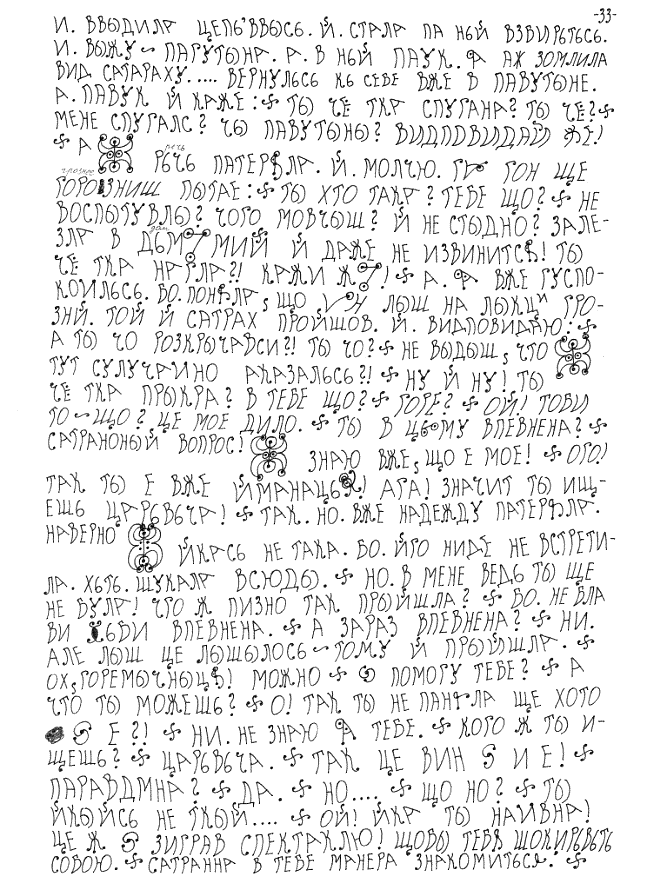 -33-
И. ВВЫДИЛА ЦЕПЬ'ВВЫСЬ. Й. СТАЛА ПА НЬЙ ВЗВИРЬТЬСЬ.
И. ВЫЖУ ~ ПАГУТЫНА. А. В НЬЙ ПАУК. Я АЖ ЗОМЛИЛА
ВИД САТАРАХУ.... ВЕРНУЛЬСЬ КЬ СЕБЕ ВЖЕ В ПАВУТЫНЕ.
А. ПАВУК Й КАЖЕ: ТЫ ЧЕ ТКА СПУГАНА? ТЫ ЧЕ?
МЕНЕ СПУГАЛС? ЧЫ ПАВУТЫНЫ? ВИДПОВИДАЙ ЖЕ!
А РЬЧЬ ПАТЕРЯЛА. Й. МОЛЧЮ. ГОН ЩЕ
ГОРОЗНИШ ПЫТАЕ: ТЫ ХТО ТАКА? ТЕБЕ ЩО? НЕ
ВОСПЫТУВЛЫ? ЧОГО МОВЧЫШ? Й НЕ СТЫДНО? ЗАЛЕ-
ЗЛА В ДЬМ МИЙ Й ДАЖЕ НЕ ИЗВИНИТСЬ! ТЫ
ЧЕ ТКА НАГЛА?! КАЖИ Ж! А. Я ВЖЕ ГУСПО-
КОИЛЬСЬ. БО. ПОНЯЛА, ЩО ЛЫШ НА ЛЫКЦИ ГРО-
ЗНИ. ТОЙ Й САТРАХ ПРОЙШОВ. Й. ВИДПОВИДАЮ:
А ТЫ ЧО РОЗКРЫЧАВСИ?! ТЫ ЧО? НЕ ВЫДЫШ, ЧТО
ТУТ СУЛУЧАИНО АКАЗАЛЬСЬ?! НУ Й НУ! ТЫ
ЧЕ ТКА ПРЫКРА? В ТЕБЕ ЩО? ГОРЕ? ОЙ! ТОБИ
ТО ~ ЩО? ЦЕ МОЕ ДИЛО. ТЫ В ЦЬОМУ ВПЕВНЕНА?
САТРАНОНЫЙ ВОПРОС! ЗНАЮ ВЖЕ, ЩО Е МОЕ! ОГО!
ТАК ТЫ Е ВЖЕ ЙМАНАЦЬ! АГА! ЗНАЧИТ ТЫ ИЩ-
ЕШЬ ЦАРЬВЬЧА! ТАК. НО. ВЖЕ НАДЕЖДУ ПАТЕРЯЛА.
НАВЕРНО ЙКАСЬ НЕ ТАКА. БО. ЙГО НИДЕ НЕ ВСТРЕТИ-
ЛА. ХЬТЬ. ШУКАЛА ВСЮДЫ. НО. В МЕНЕ ВЕДЬ ТЫ ЩЕ
НЕ БУЛА! ЧТО Ж ПИЗНО ТАК ПРЫЙШЛА? БО. НЕ БЛА
ВИ ВПЕВНЕНА. А ЗАРАЗ ВПЕВНЕНА? НИ.
АЛЕ ЛЫШ ЦЕ ЛЫШЫЛОСЬ ~ ТОМУ Й ПРЫЙШЛА.
ОХ, ГОРЕМЫЧНЫЦЬ! МОЖНО ПОМОГУ ТЕБЕ? А
ЧТО ТЫ МОЖЕШЬ? О! ТАК ТЫ НЕ ПАНЯЛА ЩЕ ХОТО
Е?! НИ. НЕ ЗНАЮ Я ТЕБЕ. КОГО Ж ТЫ И-
ЩЕШЬ? ЦАРЬВЬЧА. ТАК ЦЕ ВИН И Е!
ПАРАВДМНА? ДА. НО.... ЩО НО? ТЫ
ЙКЫЙСЬ НЕ ТКЫЙ.... ОЙ! ЙКА ТЫ НАИВНА!
ЦЕ Ж ЗИГРАВ СПЕКТАКЛЮ! ЩОБЫ ТЕБЯ ШОКИРЬВЬТЬ
СОБОЮ. САТРАННА В ТЕБЕ МАНЕРА ЗНАКОМИТЬСЯ.